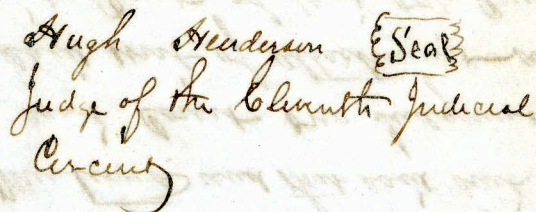 Hugh Henderson {Seal}
Judge of the Eleventh Judicial
Circuit